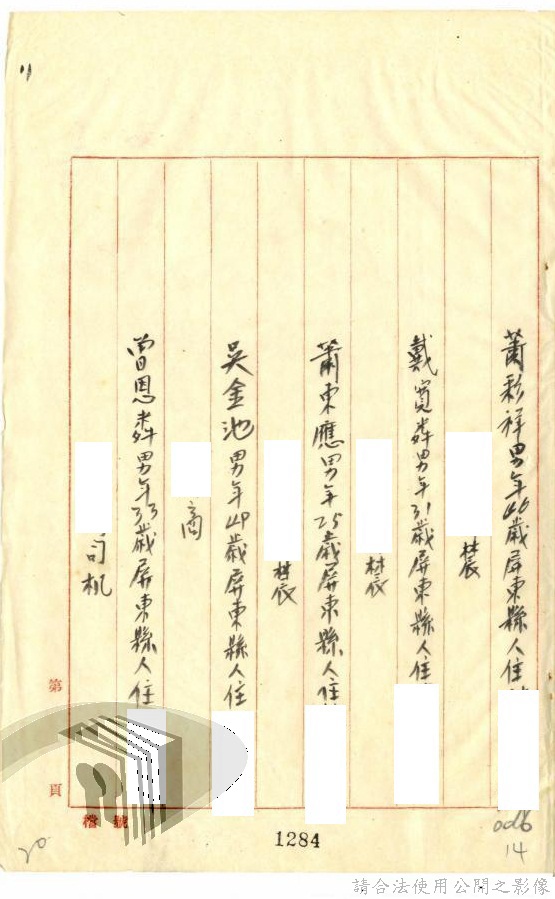 蕭彩祥男年46歲屏東縣人住
農
戴寬粦男年31歲屏東縣人住
農
蕭東應男年25歲屏東縣人住
農
吳金池男年49歲屏東縣人住
商
曾恩粦男年33歲屏東縣人住
司机
第 頁
檔 號
1284
14
20
請合法使用公開之影像